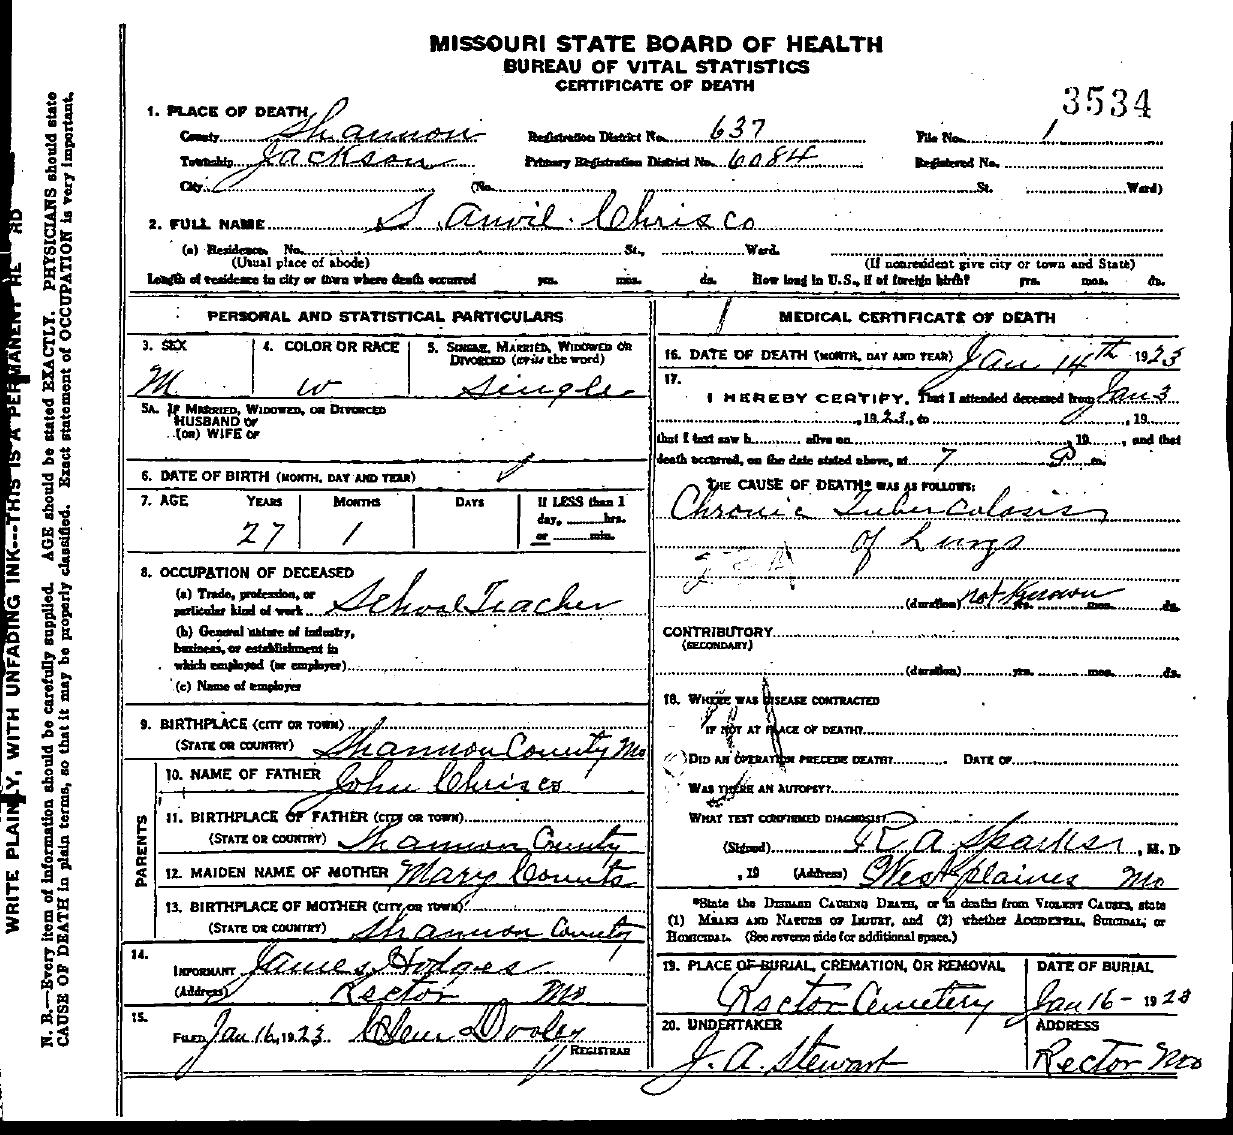 MISSOURI STATE BOARD OF HEALTH
BUREAU OF VITAL STATISTICS
CERTIFICATE OF DEATH
3534
1. PLACE OF DEATH
County Shannon Registration District No. 637 File No. 1
Township Jackson Primary Registration District No. 6084 Registered No.
City (No. St. Ward)
2. FULL NAME S. Anvil Chrisco
(a) Residence. No. St., Ward.
(Usual place of abode) (If nonresident give city or town and State)
Length of residence in city or town where death occurred yrs. mos. ds. How long in U.S., if of foreign birth? yrs. mos. ds.
PERSONAL AND STATISTICAL PARTICULARS
3. SEX 4. COLOR OR RACE 5. SINGLE, MARRIED, WIDOWED OR
DIVORCED (write the word)
M W Single
5A. IF MARRIED, WIDOWED, OR DIVORCED
HUSBAND OF
(OR) WIFE OF
6. DATE OF BIRTH (MONTH, DAY AND YEAR)
7. AGE YEARS MONTHS DAYS If LESS than 1
day, hrs.
or min.
27 1
8. OCCUPATION OF DECEASED
(a) Trade, profession, or
particular kind of work School Teacher
(b) General nature of industry,
business, or establishment in
which employed (or employer)
(c) Name of employer
9. BIRTHPLACE (CITY OR TOWN)
(STATE OR COUNTRY) Shannon County Mo
PARENTS
10. NAME OF FATHER John Chrisco
11. BIRTHPLACE OF FATHER (CITY OR TOWN)
(STATE OR COUNTRY) Shannon County
12. MAIDEN NAME OF MOTHER Mary Counts
13. BIRTHPLACE OF MOTHER (CITY OR TOWN)
(STATE OR COUNTRY) Shannon County
14.
INFORMANT James Hodges
(Address) Rector Mo
15.
FILED Jan 16, 1923 Clem Dooley
REGISTRAR
MEDICAL CERTIFICATE OF DEATH
16. DATE OF DEATH (MONTH, DAY AND YEAR) Jan 14th 1923
17.
I HEREBY CERTIFY, That I attended deceased from Jan 3
, 1923, to , 19
that I last saw h alive on 19 , and that
death occurred, on the date stated above, at 7 P m.
THE CAUSE OF DEATH* WAS AS FOLLOWS:
Chronic Tuberculosis
of Lungs
(duration) not Known yrs. mos. ds.
CONTRIBUTORY
(SECONDARY)
(duration) yrs. mos. ds.
18. WHERE WAS DISEASE CONTRACTED
IF NOT AT PLACE OF DEATH?
DID AN OPERATION PRECEDE DEATH? DATE OF
WAS THERE AN AUTOPSY?
WHAT TEST CONFIRMED DIAGNOSIS?
(Signed) R A Sparks , M. D
, 19 (Address) West plaines Mo
*State the DISEASE CAUSING DEATH, or in deaths from VIOLENT CAUSES, state
(1) MEANS AND NATURE OF INJURY, and (2) whether ACCIDENTAL, SUICIDAL, or
HOMICIDAL. (See reverse side for additional space.)
19. PLACE OF BURIAL, CREMATION, OR REMOVAL DATE OF BURIAL
Rector Cemetery Jan 16 - 1923
20. UNDERTAKER ADDRESS
J. A. Stewart Rector Mo
N. B.—Every item of information should be carefully supplied. AGE should be stated EXACTLY. PHYSICIANS should state
CAUSE OF DEATH in plain terms, so that it may be properly classified. Exact statement of OCCUPATION is very important.
WRITE PLAINLY, WITH UNFADING INK---THIS IS A PERMANENT